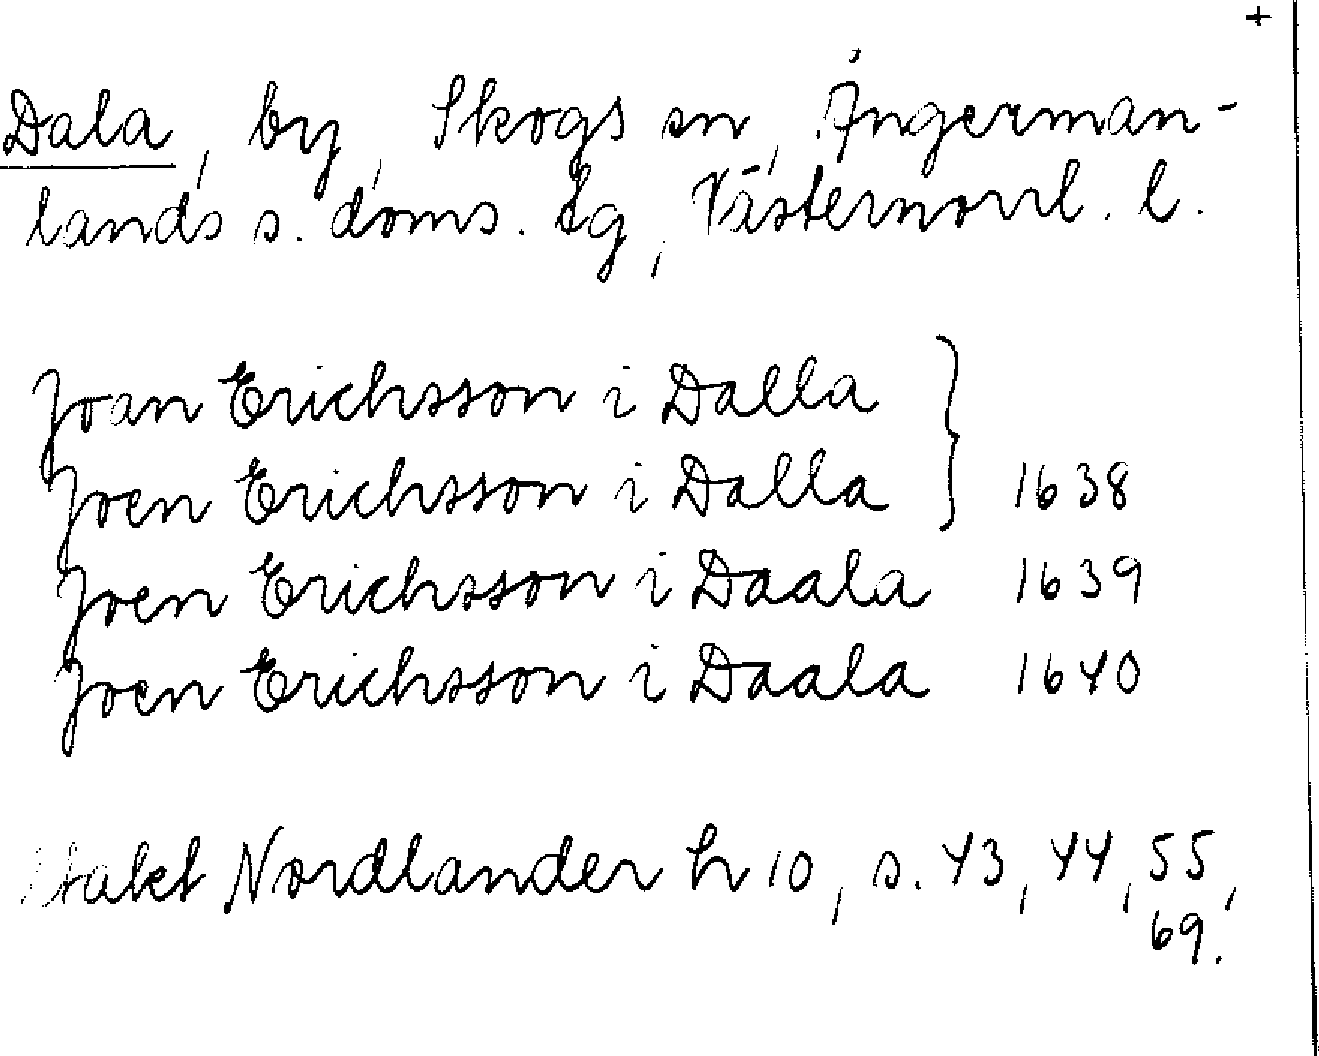 +
Dala, by, Skogs sn, Ångerman-
lands s. doms. tg, Västernorrl. l.
Joan Erichsson i Dalla
Joen Erichsson i Dalla } 1638
Joen Erichsson i Daala 1639
Joen Erichsson i Daala 1640
Nordlander h 10, s. 43, 44, 55,
69.